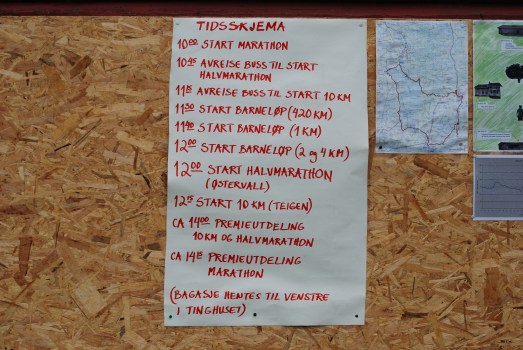 TIDSSKJEMA
10⁰⁰ START MARATHON
10⁴⁵ AVREISE BUSS TIL START
HALVMARATHON
11¹⁵ AVREISE BUSS TIL START 10 KM
11³⁰ START BARNELØP (420 KM)
11⁴⁰ START BARNELØP (1 KM)
12⁰⁰ START BARNELØP (2 og 4 KM)
12⁰⁰ START HALVMARATHON
(ØSTERVALL)
12¹⁵ START 10 KM (TEIGEN)
CA 14⁰⁰ PREMIEUTDELING
10 KM OG HALVMARATHON
CA 14¹⁵ PREMIEUTDELING
MARATHON
(BAGASJE HENTES TIL VENSTRE
I TINGHUSET)